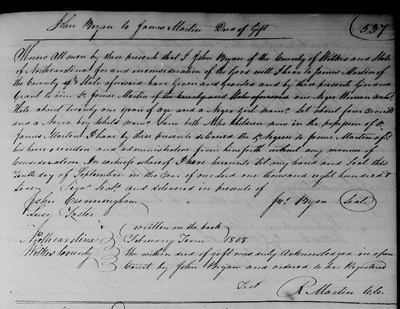 John Bryan to James Martin Deed of Gift
337
Know All men by these presents that I John Bryan of the County of Wilkes and State
of North Carolina for and in consideration of the good will I have to James Martin of
the County & State aforesaid have Given and granted and by these presents Give and
Grant to him Sd. James Martin of the County and State aforesaid one Negro Woman
Hate about twenty one years of age and a Negro Girl named about four
and a Negro boy Child named Sam both
James Martin I have by these presents released the Sd. Negroes to James Martin
heirs executors and administrators from henceforth without any manner of
Consideration. In witness whereof I have hereunto Set my hand and Seal this
tenth day of September in the Year of our lord one thousand eight hundred &
Seven Signd. Seald. and delivered in presents of
John Cunningham Jno. Bryan (Seal)
written on the back
North Carolina February Term 1808
Wilkes County The within deed of gift was duly Acknowledged in open
Court by John Bryan and ordered to be Registered
Test R. Martin C.C.